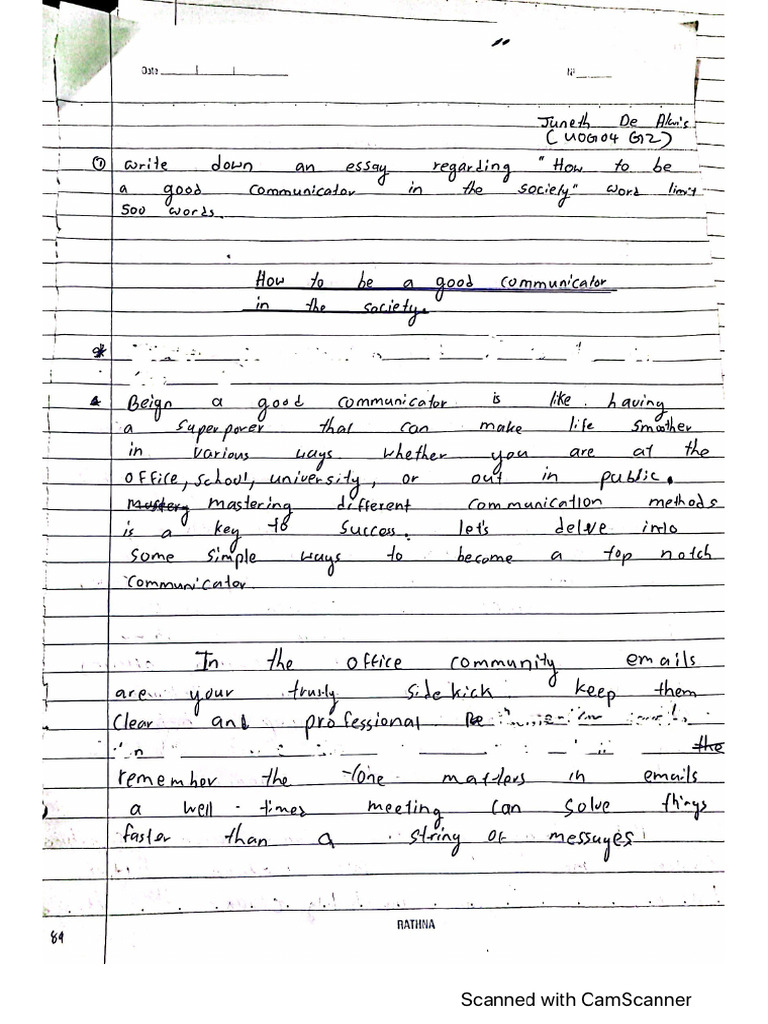 Date
No
Juneth De Alwis
(UOG04 G12)
① write down an essay regarding "How to be
a good communicator in the society" word limit
500 words.
How to be a good communicator
in the society.
Beign a good communicator is like having
a superpower that can make life smoother
in various ways whether you are at the
office, school, university, or out in public.
mastering different communication methods
is a key to success. let's delve into
some simple ways to become a top notch
communicator
In the office community emails
are your trusty sidekick keep them
clear and professional
the
remember the tone matters in emails
a well-times meeting can solve things
faster than a string of messages
RATHNA
89
Scanned with CamScanner